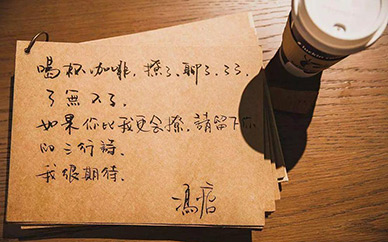 喝杯咖啡,撩了,聊了,了了,
了無 了.
如果你比我更会撩,請留下你
的三行詩.
我很期待.
馮唐